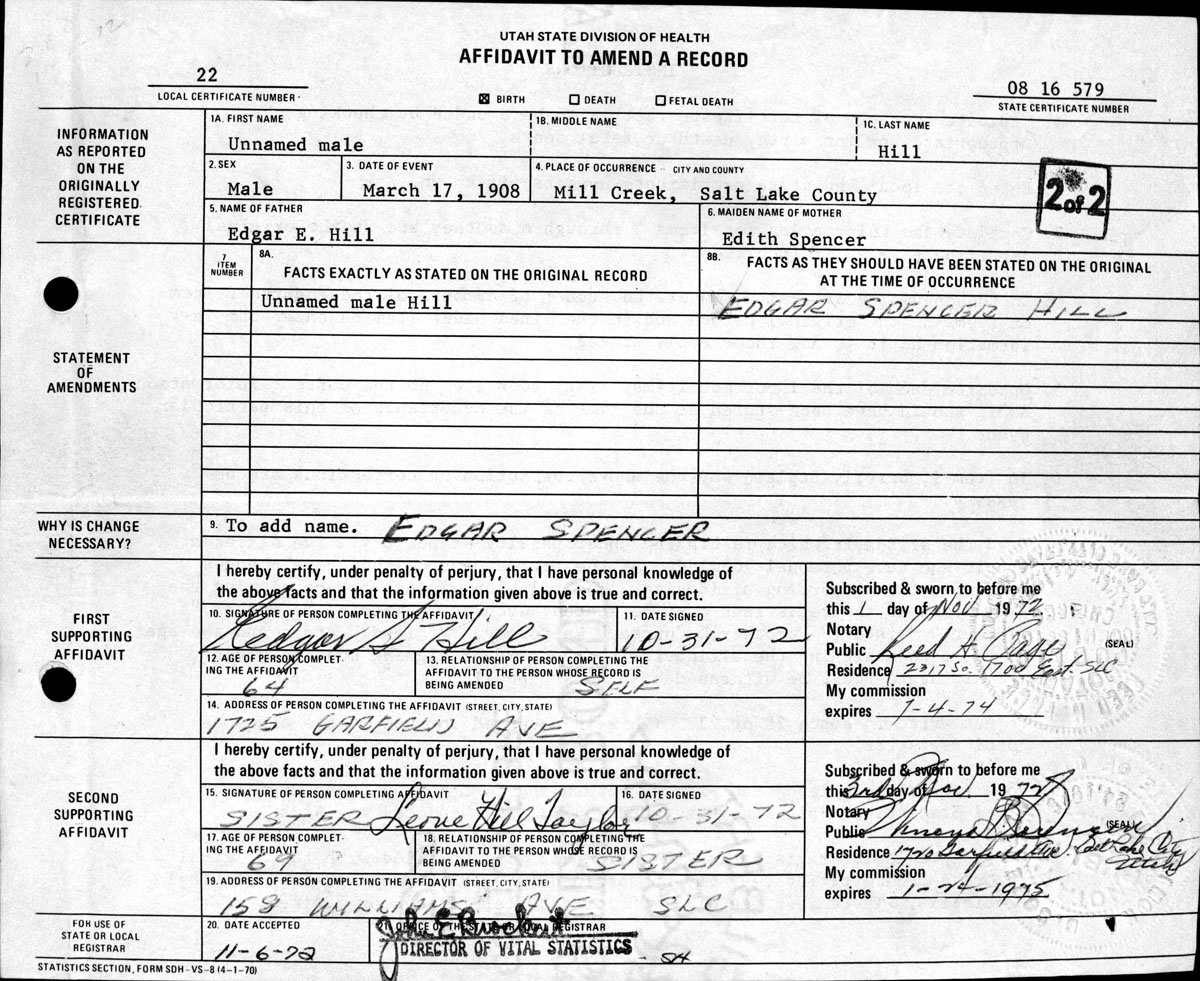 UTAH STATE DIVISION OF HEALTH
AFFIDAVIT TO AMEND A RECORD
22
LOCAL CERTIFICATE NUMBER
☒ BIRTH ☐ DEATH ☐ FETAL DEATH
08 16 579
STATE CERTIFICATE NUMBER
INFORMATION
AS REPORTED
ON THE
ORIGINALLY
REGISTERED
CERTIFICATE
1A. FIRST NAME
Unnamed male
1B. MIDDLE NAME
1C. LAST NAME
Hill
2. SEX
Male
3. DATE OF EVENT
March 17, 1908
4. PLACE OF OCCURRENCE - CITY AND COUNTY
Mill Creek, Salt Lake County
2 of 2
5. NAME OF FATHER
Edgar E. Hill
6. MAIDEN NAME OF MOTHER
Edith Spencer
STATEMENT
OF
AMENDMENTS
7
ITEM
NUMBER
8A.
FACTS EXACTLY AS STATED ON THE ORIGINAL RECORD
8B. FACTS AS THEY SHOULD HAVE BEEN STATED ON THE ORIGINAL
AT THE TIME OF OCCURRENCE
Unnamed male Hill
EDGAR SPENCER HILL
WHY IS CHANGE
NECESSARY?
9. To add name. EDGAR SPENCER
FIRST
SUPPORTING
AFFIDAVIT
I hereby certify, under penalty of perjury, that I have personal knowledge of
the above facts and that the information given above is true and correct.
10. SIGNATURE OF PERSON COMPLETING THE AFFIDAVIT
Edgar S Hill
11. DATE SIGNED
10-31-72
12. AGE OF PERSON COMPLET-
ING THE AFFIDAVIT
64
13. RELATIONSHIP OF PERSON COMPLETING THE
AFFIDAVIT TO THE PERSON WHOSE RECORD IS
BEING AMENDED SELF
14. ADDRESS OF PERSON COMPLETING THE AFFIDAVIT (STREET, CITY, STATE)
1725 GARFIELD AVE
Subscribed & sworn to before me
this 1 day of Nov 1972
Notary
Public Reed H
(SEAL)
Residence 2317 So. 1700 East. SLC
My commission
expires 7-4-74
SECOND
SUPPORTING
AFFIDAVIT
I hereby certify, under penalty of perjury, that I have personal knowledge of
the above facts and that the information given above is true and correct.
15. SIGNATURE OF PERSON COMPLETING AFFIDAVIT
SISTER Leone Hill Taylor
16. DATE SIGNED
10-31-72
17. AGE OF PERSON COMPLET-
ING THE AFFIDAVIT
69
18. RELATIONSHIP OF PERSON COMPLETING THE
AFFIDAVIT TO THE PERSON WHOSE RECORD IS
BEING AMENDED SISTER
19. ADDRESS OF PERSON COMPLETING THE AFFIDAVIT (STREET, CITY, STATE)
158 WILLIAMS AVE SLC
Subscribed & sworn to before me
this 3rd day of Nov. 1972
Notary
Public
(SEAL)
Residence 1720 Garfield Ave. Salt Lake City
Utah
My commission
expires 1-24-1975
FOR USE OF
STATE OR LOCAL
REGISTRAR
20. DATE ACCEPTED
11-6-72
21. OFFICE OF THE STATE OR LOCAL REGISTRAR
DIRECTOR OF VITAL STATISTICS
STATISTICS SECTION, FORM SDH-VS-8 (4-1-70)